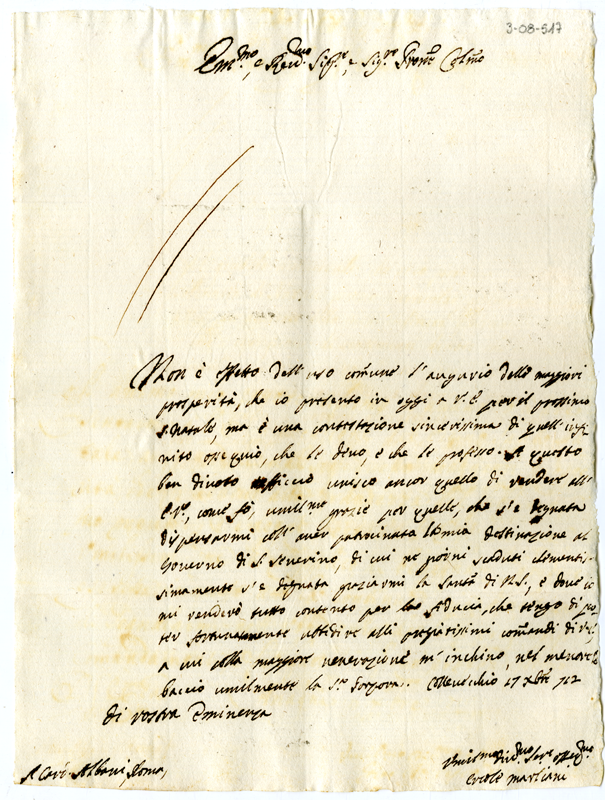 3-08-517
Em.mo, e Rev.dmo Sig.re, e Sig.re Prone Colmo
Non è effetto dell'uso comune l'augurio delle maggiori
prosperità, che io presento in oggi a V.E. per il prossimo
S. Natale, ma è una contestazione sincerissima di quell'infi-
nito ossequio, che le devo, e che le professo. A questo
ben divoto officio unisco ancor quello di rendere all'
E.V., come fò, umilme grazie per quelle, che s'è degnata
dispensarmi coll'aver patrocinata la mia destinazione al
Governo di S. Severino, di cui ne giorni scaduti clementis-
simamente s'è degnata graziarmi la Santà di N.S., e dove io
mi renderò tutto contento per la fiducia, che tengo di po-
ter fortunatamente ubbidire alli pregiatissimi comandi di V.E.
a cui colla maggiore venerazione m'inchino, nel mentre le
baccio umilmente la S. Porpora. Collevecchio 17 Xbre 712
di Vostra Eminenza
A Card. Albani, Roma,
Umilsmo Divmo Serre osseqmo
Ercole Marliani